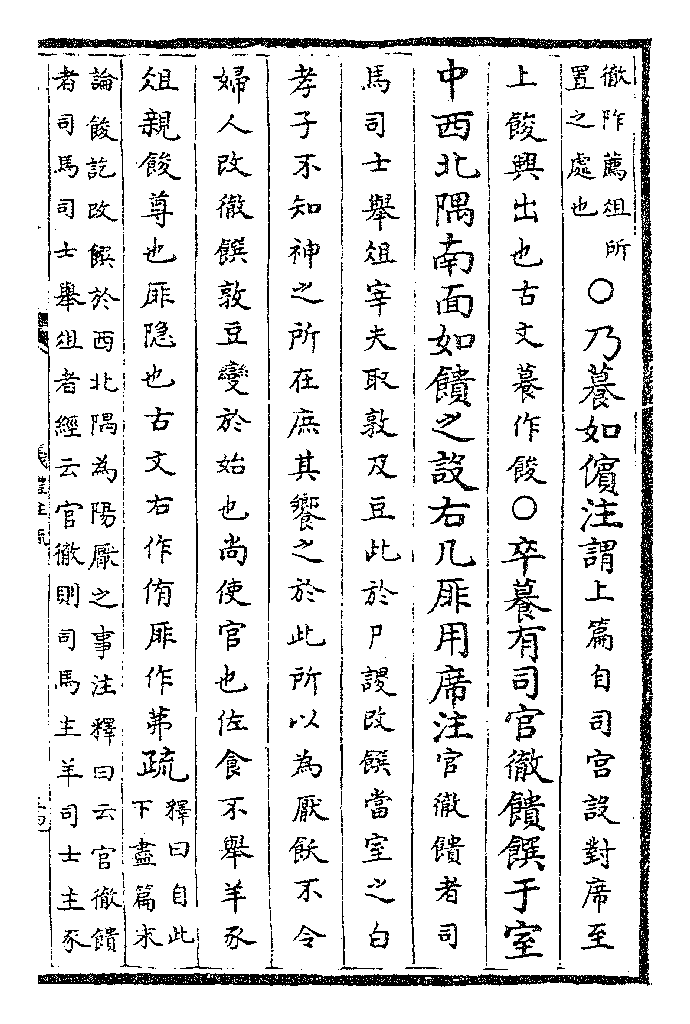 徹阼薦俎所
置之處也
○乃䔔如儐注謂上篇自司宮設對席至
上餕興出也古文䔔作餕○卒䔔有司官徹饋饌于室
中西北隅南面如饋之設右几厞用席注官徹饋者司
馬司士舉俎宰夫取敦及豆此於尸謖改饌當室之白
孝子不知神之所在庶其饗之於此所以為厭飫不令
婦人改徹饌敦豆變於始也尚使官也佐食不舉羊豕
俎親餕尊也厞隐也古文右作侑厞作茀疏
釋曰自此
下盡篇末
論餕訖改饌於西北隅為陽厭之事注釋曰云官徹饋
者司馬司士舉俎者經云官徹則司馬主羊司士主豕